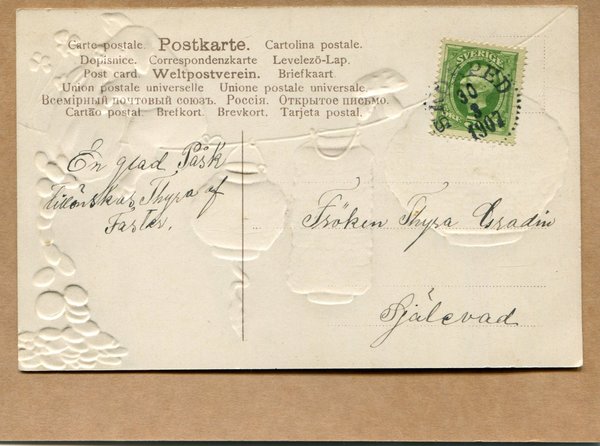 Carte postale. Postkarte. Cartolina postale.
Dopisnice. Correspondenzkarte Levelező-Lap.
Post card. Weltpostverein. Briefkaart
Union postale universelle Unione postale universale.
Всемірный почтовый союзъ. Россія. Открытое письмо.
Cartão postal. Brefkort. Brevkort. Tarjeta postal.
SVERIGE
10
3
1907
En glad Påsk
tillönskas Thyra af
Faster.
Fröken Thyra Gradin
Själevad